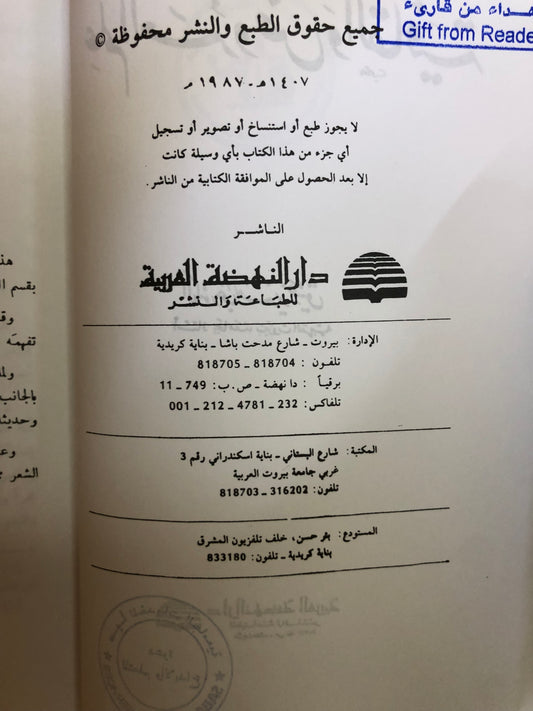 إهداء من قارىء
Gift from Reade
جميع حقوق الطبع والنشر محفوظة ©
١٤٠٧ هـ - ١٩٨٧ م
لا يجوز طبع أو استنساخ أو تصوير أو تسجيل
أي جزء من هذا الكتاب بأي وسيلة كانت
إلا بعد الحصول على الموافقة الكتابية من الناشر.
الناشر
دار النهضة العربية
للطباعة والنشر
الإدارة: بيروت - شارع مدحت باشا - بناية كريدية
تلفون: 818704 - 818705
برقياً: دانهضة - ص.ب: 749 - 11
تلفاكس: 232 - 4781 - 212 - 001
المكتبة: شارع البستاني - بناية اسكندراني رقم 3
غربي جامعة بيروت العربية
تلفون: 316202 - 818703
المستودع: بئر حسن، خلف تلفزيون المشرق
بناية كريدية - تلفون: 833180
هذ
بقسم ال
وقد
تفهمه
ولما
بالجانب
وحديثه
وعا
الشعر